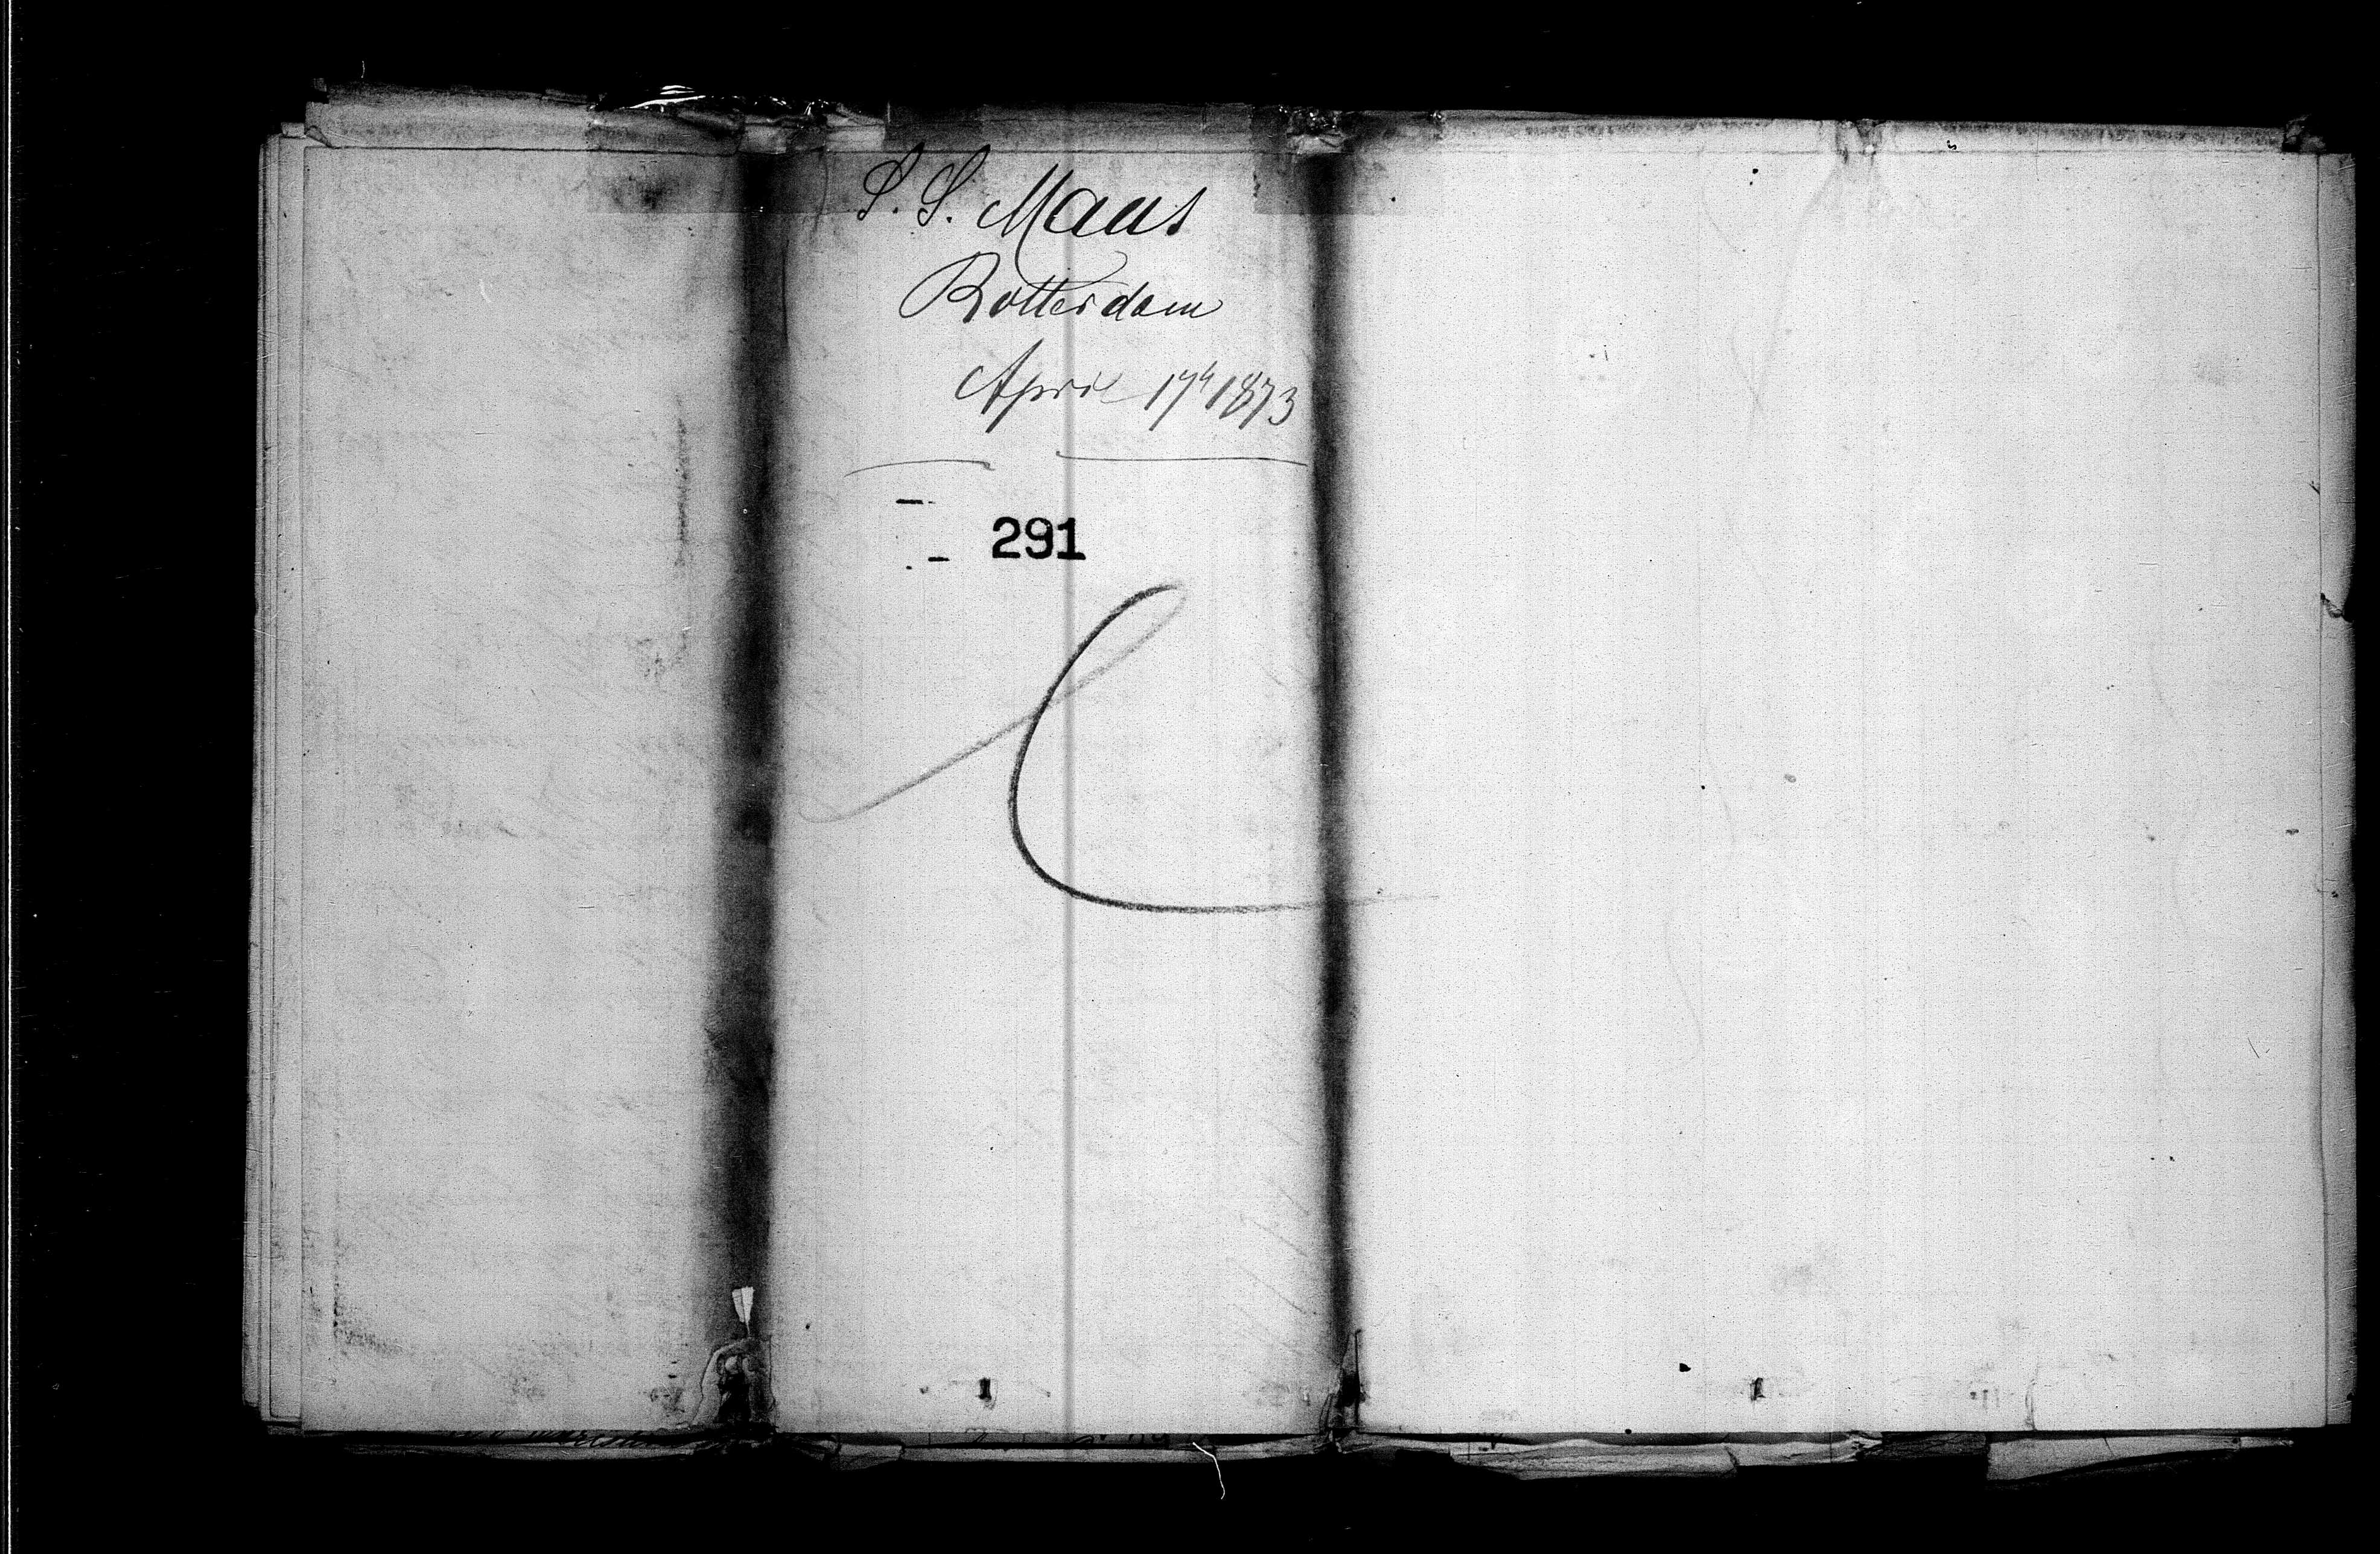 S. S. Maas
Rotterdam
April 17th 1873
291